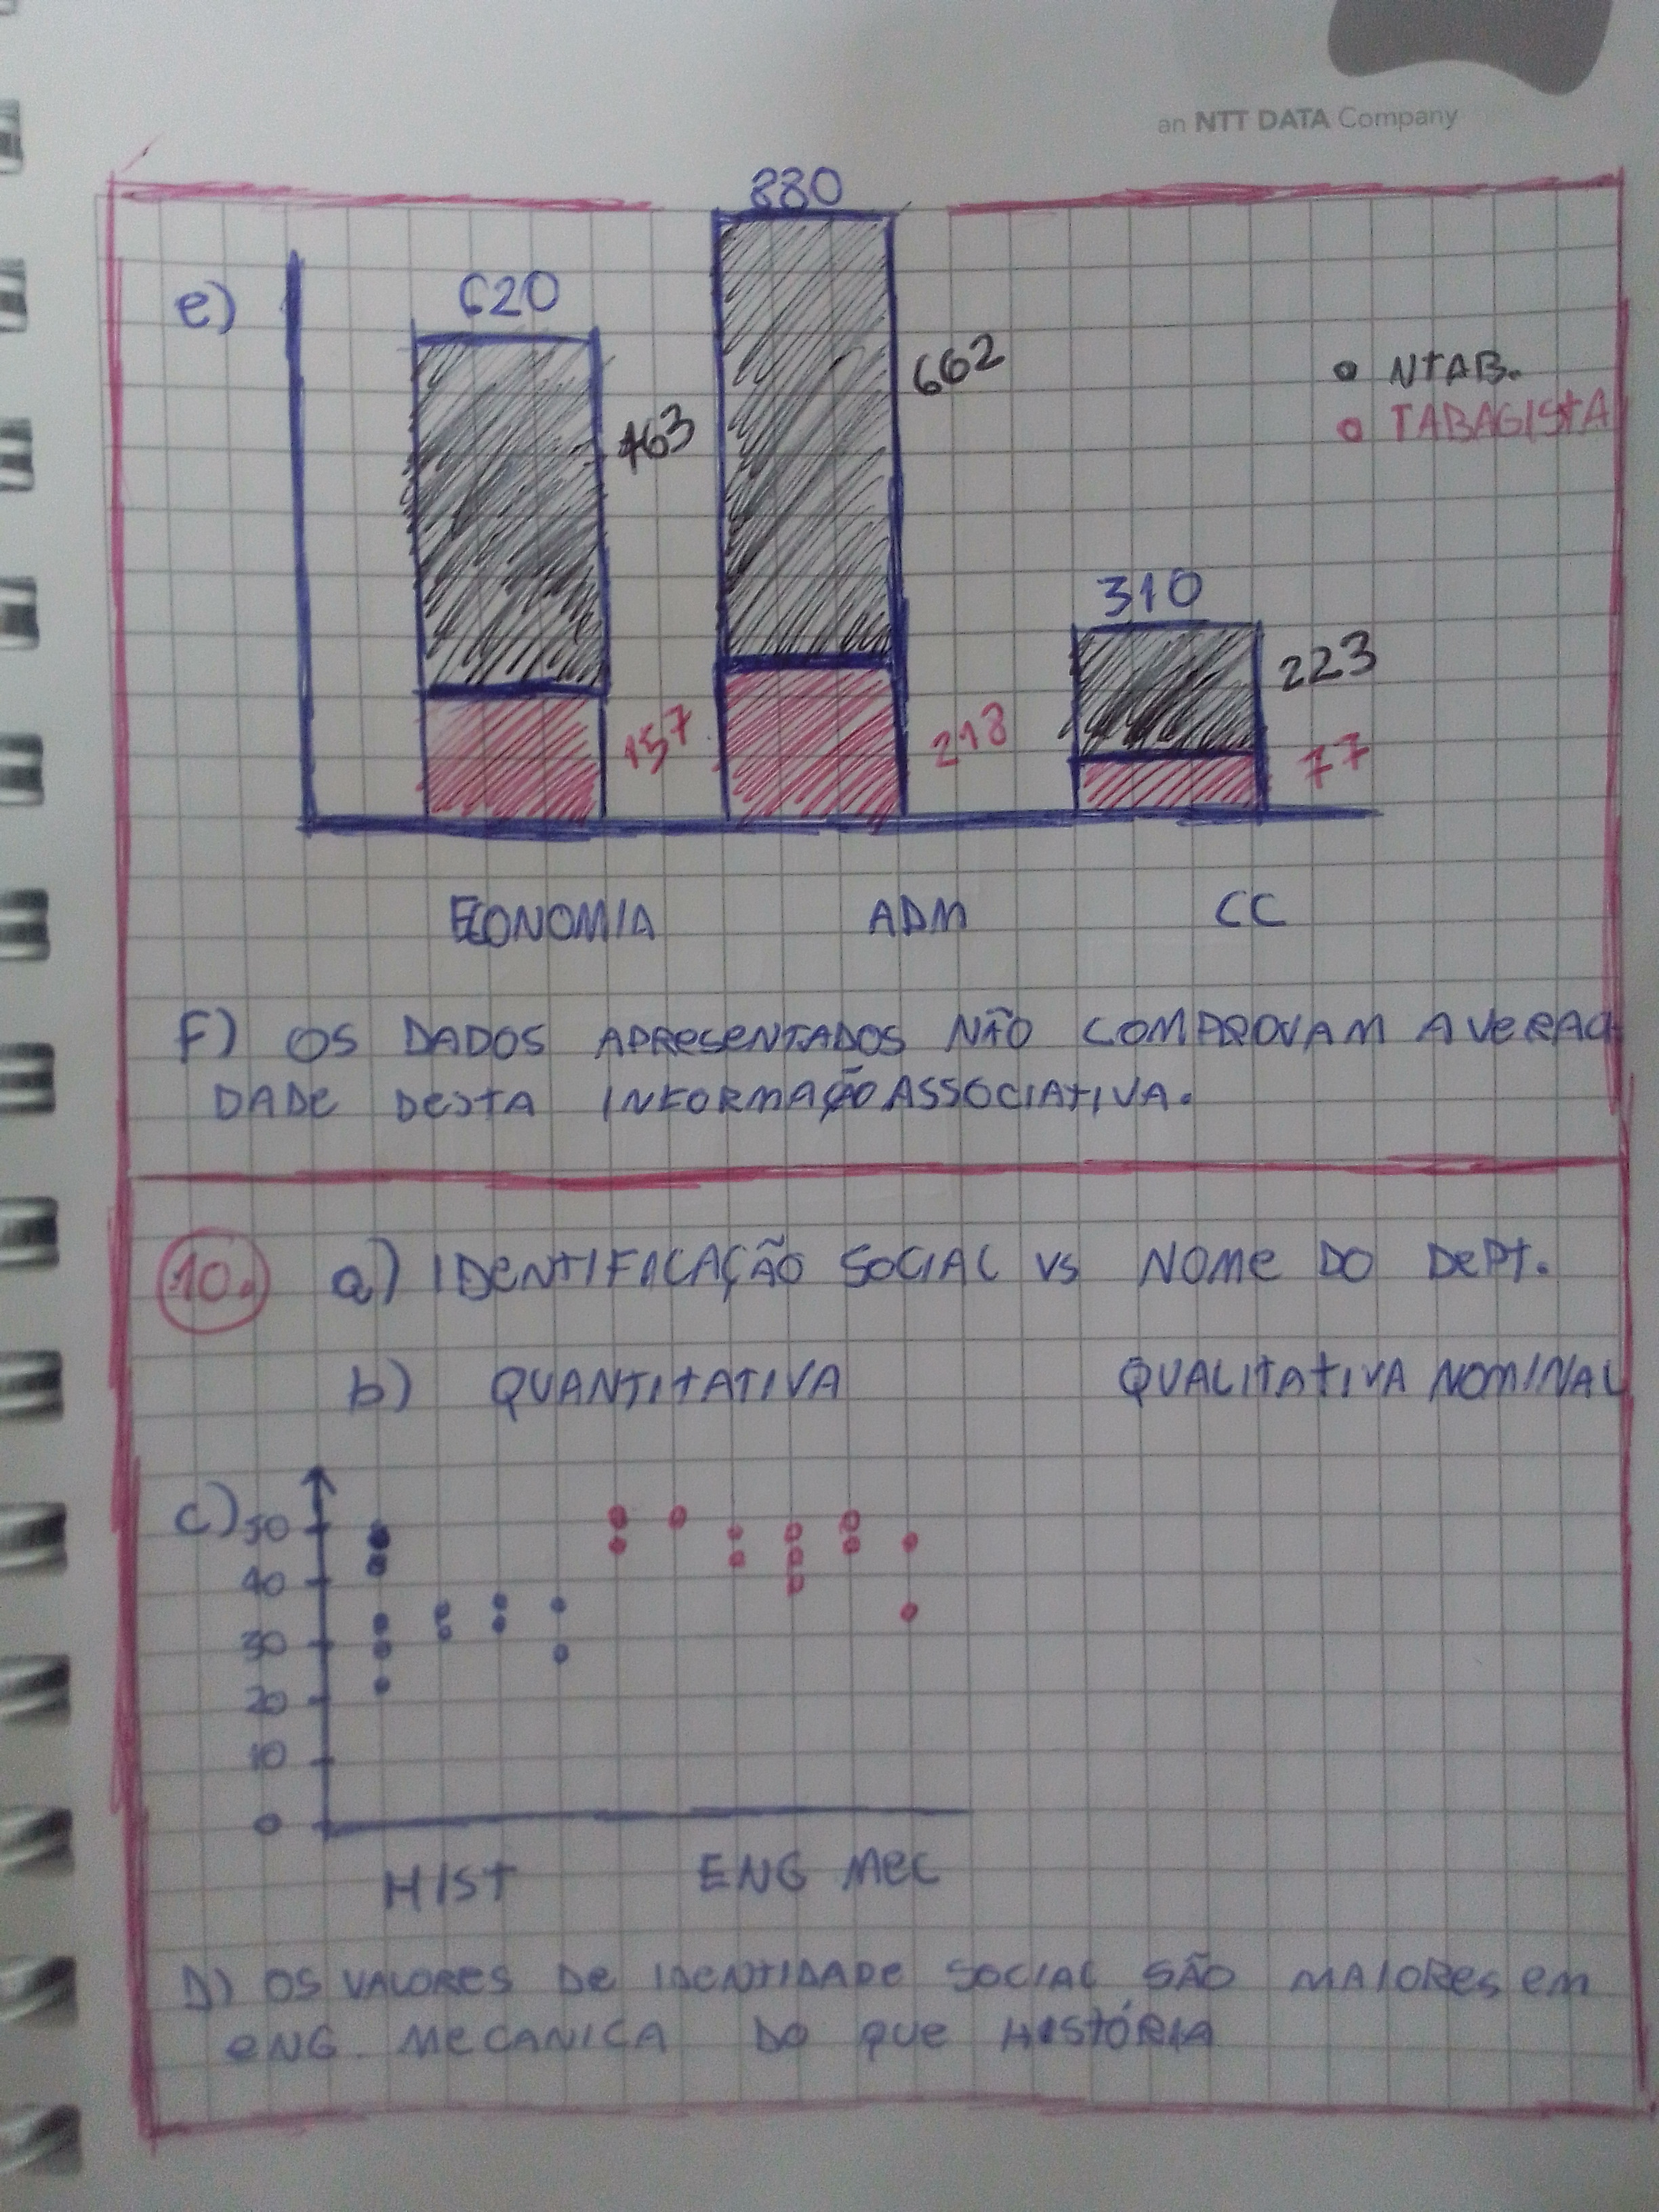 an NTT DATA Company
880
e)
620
662
463
NTAB.
TABAGISTA
310
223
157
218
77
ECONOMIA ADM CC
F) OS DADOS APRESENTADOS NÃO COMPROVAM A VERACI
DADE DESTA INFORMAÇÃO ASSOCIATIVA.
10. a) IDENTIFICAÇÃO SOCIAL VS NOME DO DEPT.
b) QUANTITATIVA QUALITATIVA NOMINAL
c) 50
40
30
20
10
0
HIST ENG MEC
D) OS VALORES DE IDENTIDADE SOCIAL SÃO MAIORES EM
ENG. MECANICA DO QUE HISTÓRIA